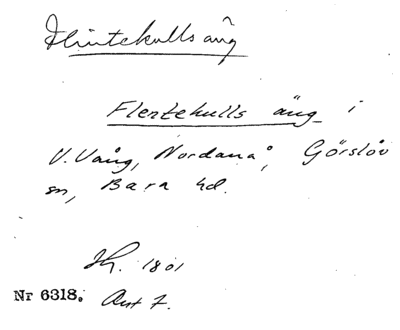 Flintekulls äng
Flentekulls äng i
V. Vång, Nordanå, Görslöv
sn, Bara hd.
Sk. 1801
Nr 6318. Akt 7.